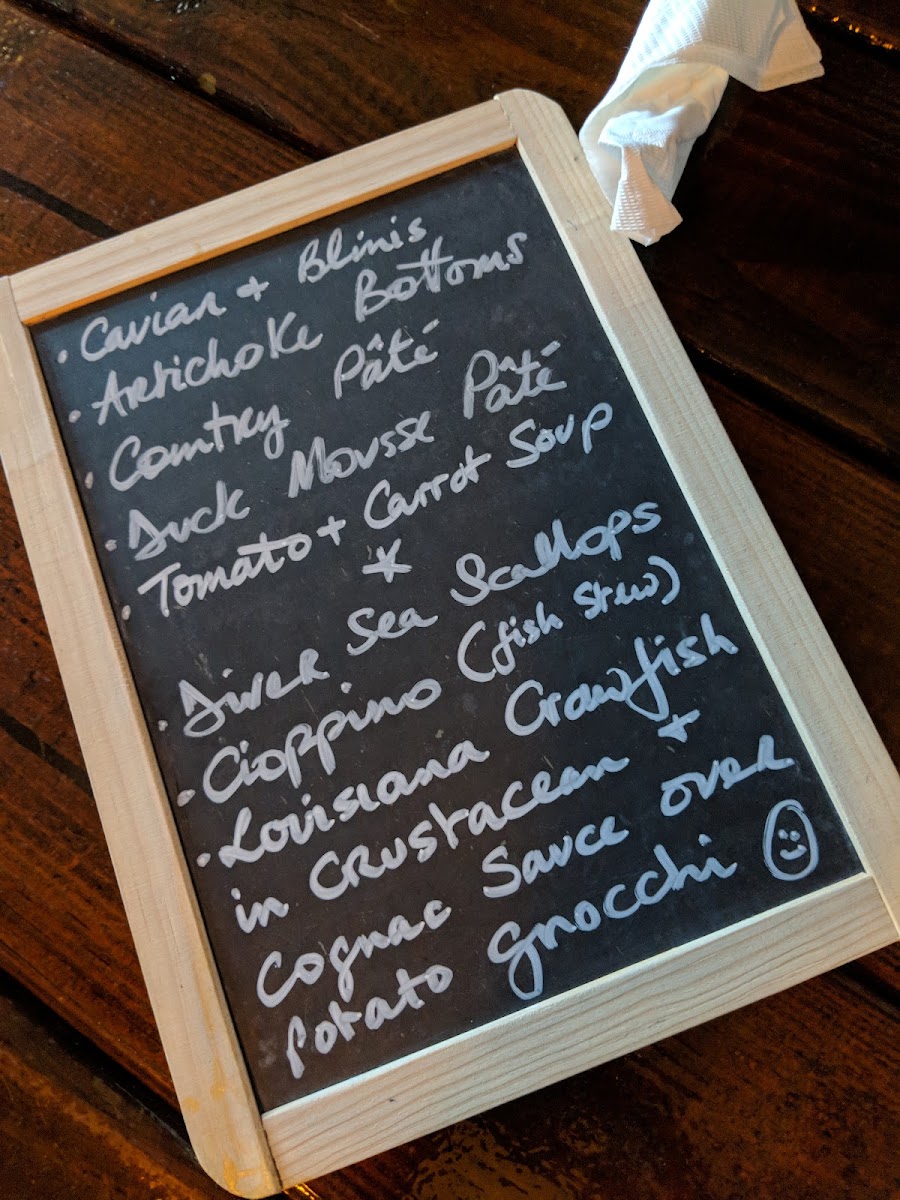 · Caviar + Blinis
· Artichoke Bottoms
· Country Pâté
· Duck Mousse Pâté
· Tomato + Carrot Soup
*
· Diver Sea Scallops
· Cioppino (fish stew)
· Louisiana Crawfish
in crustacean +
cognac sauce over
potato gnocchi